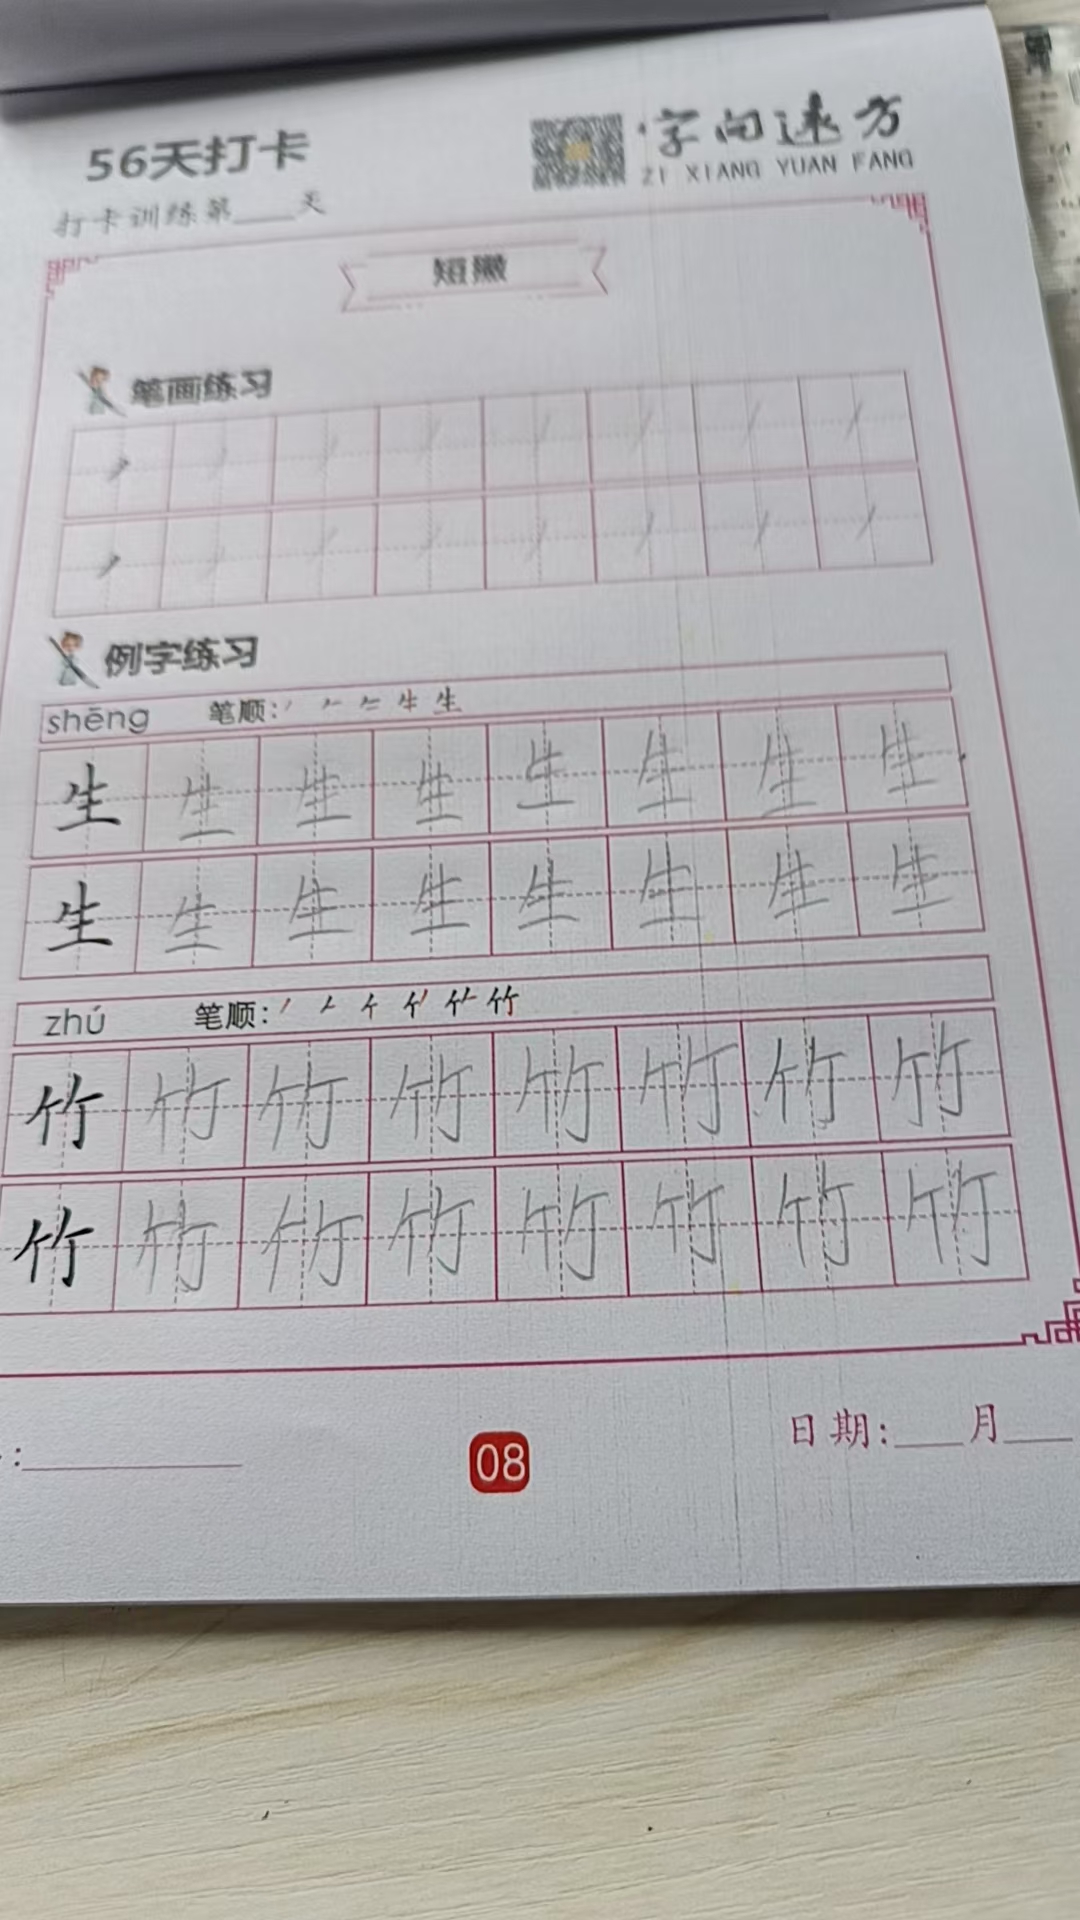 56天打卡
字向远方
ZI XIANG YUAN FANG
打卡训练第____天
短撇
笔画练习
例字练习
shēng 笔顺: 生
生 生 生 生 生 生 生 生
生 生 生 生 生 生 生 生
zhú 笔顺: 竹
竹 竹 竹 竹 竹 竹 竹 竹
竹 竹 竹 竹 竹 竹 竹 竹
:__________
08
日期:____月____